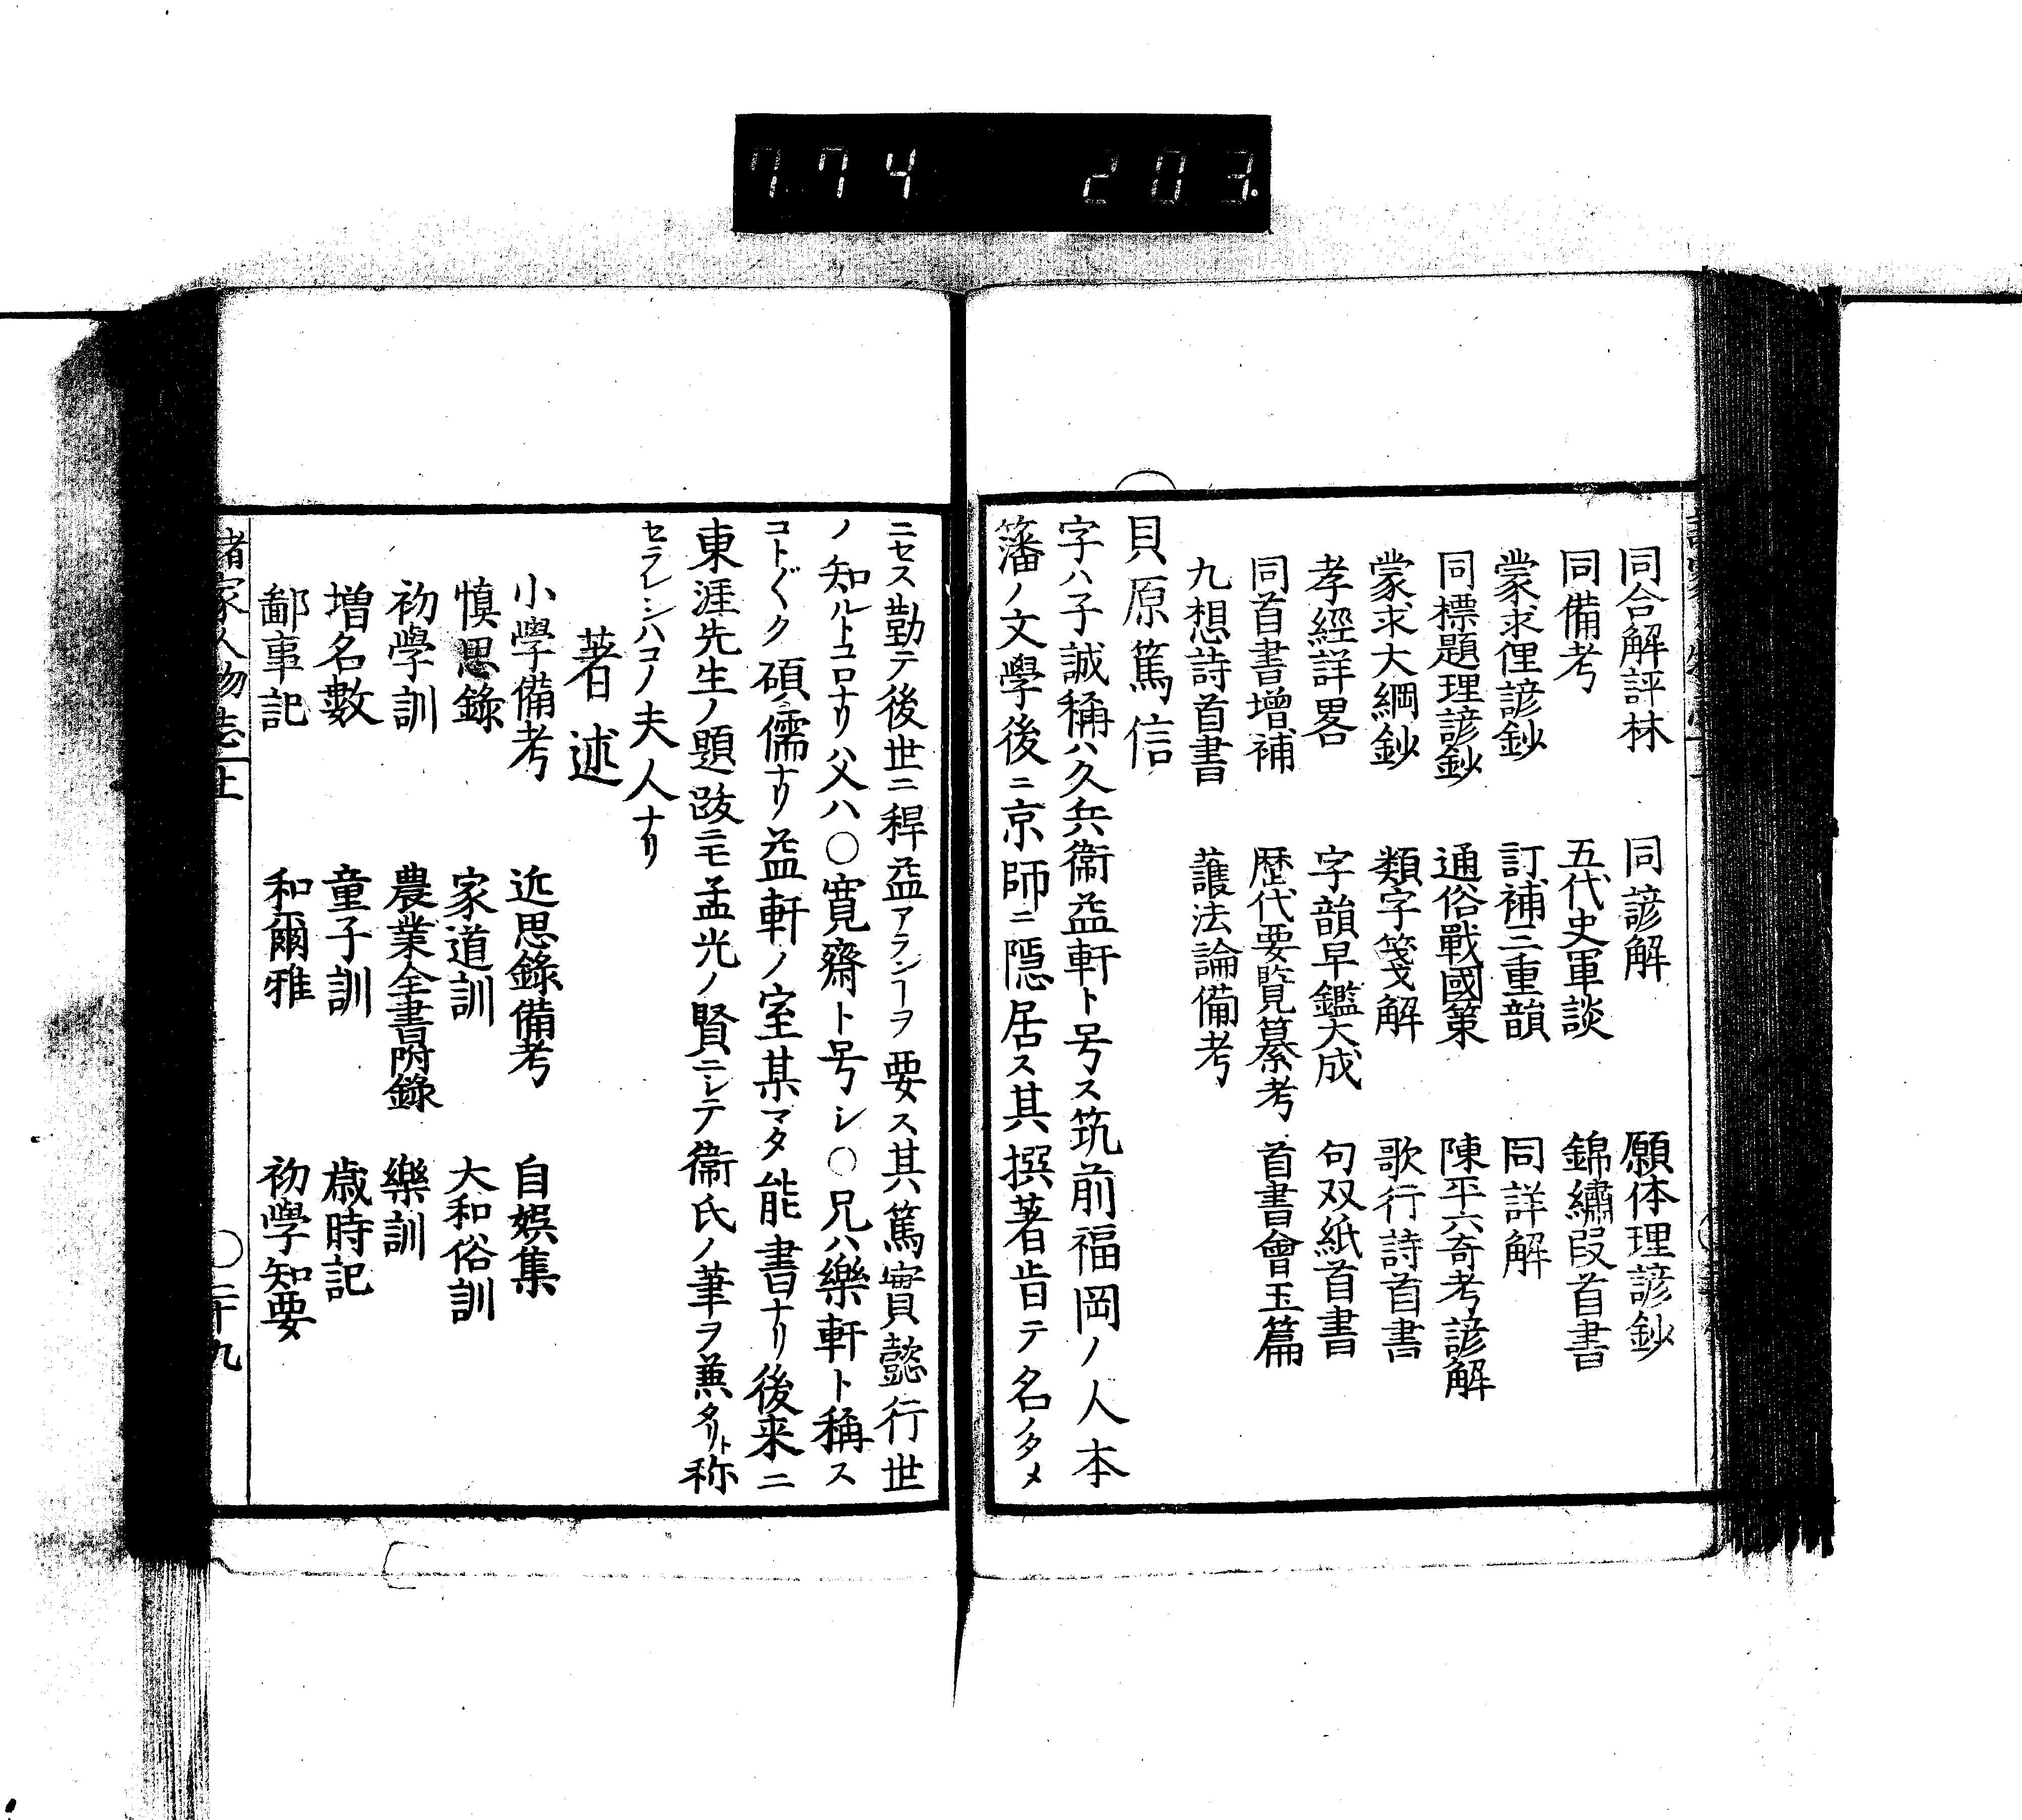 774 203
同合解評林　同諺解　願体理諺鈔
同備考　五代史軍談　錦繡段首書
蒙求俚諺鈔　訂補三重韻　同詳解
同標題理諺鈔　通俗戰國策　陳平六奇考諺解
蒙求大綱鈔　類字箋解　歌行詩首書
孝經詳畧　字韻早鑑大成　句双紙首書
同首書增補　歴代要覧纂考　首書會玉篇
九想詩首書　護法論備考
貝原篤信
字ハ子誠稱ハ久兵衞益軒ト号ス筑前福岡ノ人本
藩ノ文學後ニ京師ニ隱居ス其撰著皆テ名ノタメ
ニセス勤テ後世ニ稗益アランヿヲ要ス其篤實懿行世
ノ知ルトコロナリ父ハ○寬齋ト号シ○兄ハ樂軒ト稱ス
コト〴〵ク碩儒ナリ益軒ノ室某マタ能書ナリ後来ニ
東涯先生ノ題跋ニモ孟光ノ賢ニシテ衞氏ノ筆ヲ兼タリト称
セラレシハコノ夫人ナリ
著述
小學備考　近思錄備考　自娯集
慎思錄　家道訓　大和俗訓
初學訓　農業全書附錄　樂訓
増名數　童子訓　歳時記
鄙事記　和爾雅　初學知要
諸家人物志上　○二十九